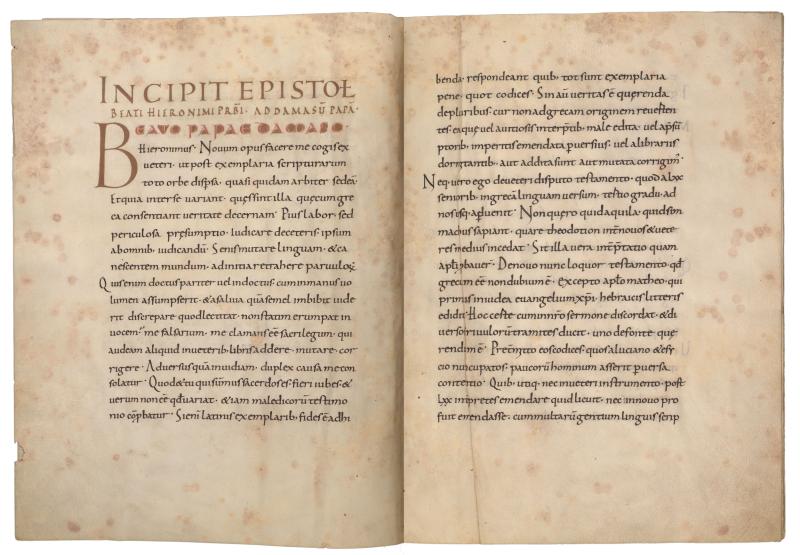 INCIPIT EPISTOŁ
BEATI HIERONIMI PRBI · AD DAMASŪ PAPĀ ·
BEATO PAPAE DAMASO ·
Hieronimus · Novum opus facere me cogis ex
veteri · ut post exemplaria scripturarum
toto orbe dispsa · quasi quidam arbiter sedeā ·
Et quia inter se variant · quę sint illa quę cum gre
ca consentiant veritate decernam · Pius labor · sed
periculosa pręsumptio · iudicare de ceteris · ipsum
ab omnib; iudicandū · Senis mutare linguam · & ca
nescentem mundum · ad initia retrahere parvulorꝝ ·
Quis enim doctus pariter vel indoctus · cum in manus vo
lumen assumpserit · & a saliva quā semel imbibit vide
rit discrepare quod lectitat · non statim erumpat in
vocem · me falsarium · me clamans eē sacrilegum · qui
audeam aliquid in veterib; libris addere · mutare · cor
rigere · Adversus quā invidiam · duplex causa me con
solatur · Quod & tu qui summus sacerdos es · fieri iubes · &
verum non eē qđ variat · & iam maledicorū testimo
nio cōpbatur · Si enī latinis exemplarib; fides ē adhi
benda · respondeant quib; tot sunt exemplaria
pene · quot codices · Sin aū veritas ē quęrenda
de pluribus · cur non ad grecam originem reverten
tes · ea quę vel a vitiosis interptib; male edita · vel a psū
ptorib; impertis emendata pversius · vel a librariis
dormitantib; aut addita sunt aut mutata corrigim ·
Neq; vero ego de veteri disputo testamento · quod a lxx
seniorib; in grecā linguam versum · tertio gradu · ad
nos usq; pvenit · Non quęro quid aquila · quid sim
machus sapiant · quare theodotion int novos & vete
res medius incedat · Sit illa vera intptatio quam
apłi pbaver · De novo nunc loquor testamento · qđ
grecum eē non dubium ē · excepto apło matheo · qui
primus in iudea evangelium xpi · hebraicis litteris
edidit · Hoc certe cum in nro sermone discordat · & di
versos rivulorū tramites ducit · uno de fonte que
rendum ē · Pretmitto eos codices · quos a luciano & esy
cio nuncupatos · paucorū hominum asserit pversa
contentio · Quib; utiq; nec in veteri instrumento · post
lxx intpretes emendare quid licuit · nec in novo pro
fuit emendasse · cum multarū gentium linguis scrip